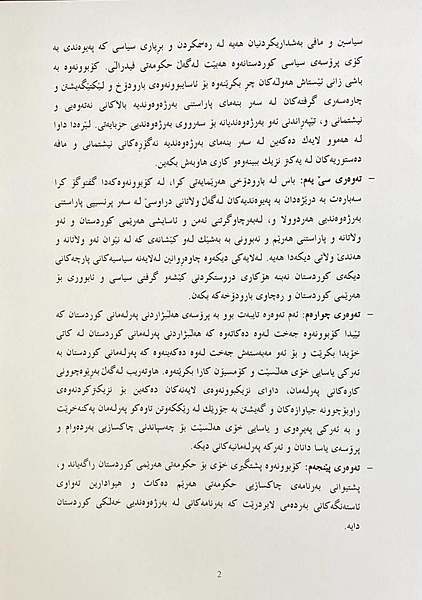 سیاسین و مافی بەشداریکردنیان هەیە لە رەسمکردن و بڕیاری سیاسی کە پەیوەندی بە
کۆی پرۆسەی سیاسی کوردستانەوە هەبێت لەگەڵ حکومەتی فیدراڵی. کۆبوونەوە بە
باشی زانی ئێستاش هەوڵەکان چڕ بکرێنەوە بۆ ئاساییوونەوەی بارودۆخ و لێکتێگەیشتن و
چارەسەری گرفتەکان لە سەر بنەمای پاراستنی بەرژەوەندییە بالاکانی نەتەوەیی و
نیشتمانی، و تێپەڕاندنی ئەو بەرژەوەندیانە بۆ سەرووی بەرژەوەندیی حزبایەتی. لێرەدا داوا
لە هەموو لایەك دەکەین لە سەر بنەمای بەرژەوەندییە نەگۆڕەکانی نیشتمانی و مافە
دەستوریەکان لە یەکتر نزیك ببینەوەو کاری هاوبەش بکەین.
– تەوەری سێ یەم: باس لە بارودۆخی هەرێمایەتی کرا، لە کۆبوونەوەکەدا گفتوگۆ کرا
سەبارەت بە درێژەدان بە پەیوەندیەکان لەگەڵ ولاتانی دراوسێ لە سەر پرنسیپی پاراستنی
بەرژەوەندیی هەردوولا و، لەبەرچاوگرتنی ئەمن و ئاسایشی هەرێمی کوردستان و ئەو
ولاتانە و پاراستنی هەرێم و نەبوونی بە بەشێك لەو کێشانەی کە لە نێوان ئەو ولاتانە و
هەندێ ولاتی دیکەدا هەیە. لەلایەکی دیکەوە چاوەڕوانین لەلایەنە سیاسیەکانی پارچەکانی
دیکەی کوردستان نەبنە هۆکاری دروستکردنی کێشەو گرفتی سیاسی و ئابووری بۆ
هەرێمی کوردستان و رەچاوی بارودۆخەکە بکەن.
– تەوەری چوارەم: ئەم تەوەرە تایبەت بوو بە پرۆسەی هەڵبژاردنی پەرلەمانی کوردستان کە
تێیدا کۆبوونەوە جەخت لەوە دەکاتەوە کە هەڵبژاردنی پەرلەمانی کوردستان لە کاتی
خۆیدا بکرێت و بۆ ئەو مەبەستەش جەخت لەوە دەکەینەوە کە پەرلەمانی کوردستان بە
ئەرکی یاسایی خۆی هەڵسێت و کۆمسیۆن کارا بکرێتەوە. هاوتەریب لەگەڵ بەڕێوەچوونی
کارەکانی پەرلەمان، داوای نزیکبوونەوەی لایەنەکان دەکەین بۆ نزیکترکردنەوەی
راوبۆچوونە جیاوازەکان و گەیشتن بە جۆرێك لە رێککەوتن تاوەکو پەرلەمان پەکنەخرێت
و بە ئەرکی پەیڕەوی و یاسایی خۆی هەڵسێت بۆ چەسپاندنی چاکسازیی بەردەوام و
پرۆسەی یاسا دانان و ئەرکە پەرلەمانیەکانی دیکە.
– تەوەری پێنجەم: کۆبوونەوە پشتگیری خۆی بۆ حکومەتی هەرێمی کوردستان راگەیاند و،
پشتیوانی بەرنامەی چاکسازیی حکومەتی هەرێم دەکات و هیوادارین تەواوی
ئاستەنگەکانی بەردەمی لابردرێت کە بەرنامەکانی لە بەرژەوەندیی خەڵکی کوردستان
دایە.
2